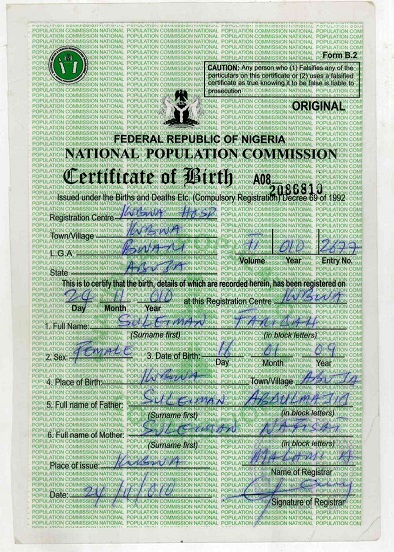 Form B.2
CAUTION: Any person who (1) Falsifies any of the
particulars on this certificate or (2) uses a falsified
certificate as true knowing it to be false is liable to
prosecution
ORIGINAL
FEDERAL REPUBLIC OF NIGERIA
NATIONAL POPULATION COMMISSION
Certificate of Birth A08 2086810
Issued under the Births and Deaths Etc. (Compulsory Registration) Decree 69 of 1992
Registration Centre KUBWA HOSP
Town/Village KUBWA
L.G.A. BWARI VI 010 2877
Volume Year Entry No.
State ABUJA
This is to certify that the birth, details of which are recorded herein, has been registered on
24 11 010 at this Registration Centre KUBWA
Day Month Year
1. Full Name: SULEIMAN FARIDAH
(Surname first) (in block letters)
2. Sex: FEMALE 3. Date of Birth: 16 01 09
Day Month Year
4. Place of Birth: KUBWA Town/Village ABUJA
5. Full name of Father: SULEIMAN ABDULMAJID
(Surname first) (in block letters)
6. Full name of Mother: SULEIMAN NAFISAT
(Surname first) (in block letters)
Place of issue: KUBWA MALAMI A
Name of Registrar
Date: 24/11/010
Signature of Registrar